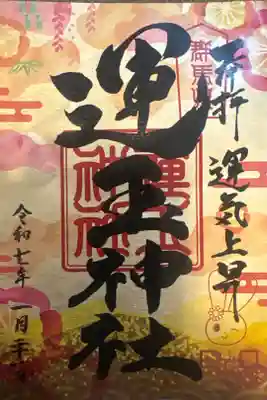 奉拝 運気上昇
運玉神社
令和七年 一月